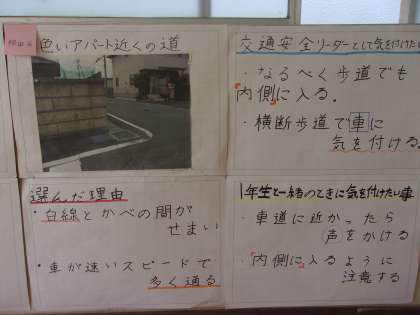 色いアパート近くの道
選んだ理由
・白線とかべの間が
せまい
・車が速いスピードで
多く通る
交通安全リーダーとして気を付けたい
・なるべく歩道でも
「内側」に入る。
・横断歩道で車に
気を付ける。
1年生と一緒のときに気を付けたい事
・車道に近かったら
声をかける
・「内側に」入るように
注意する